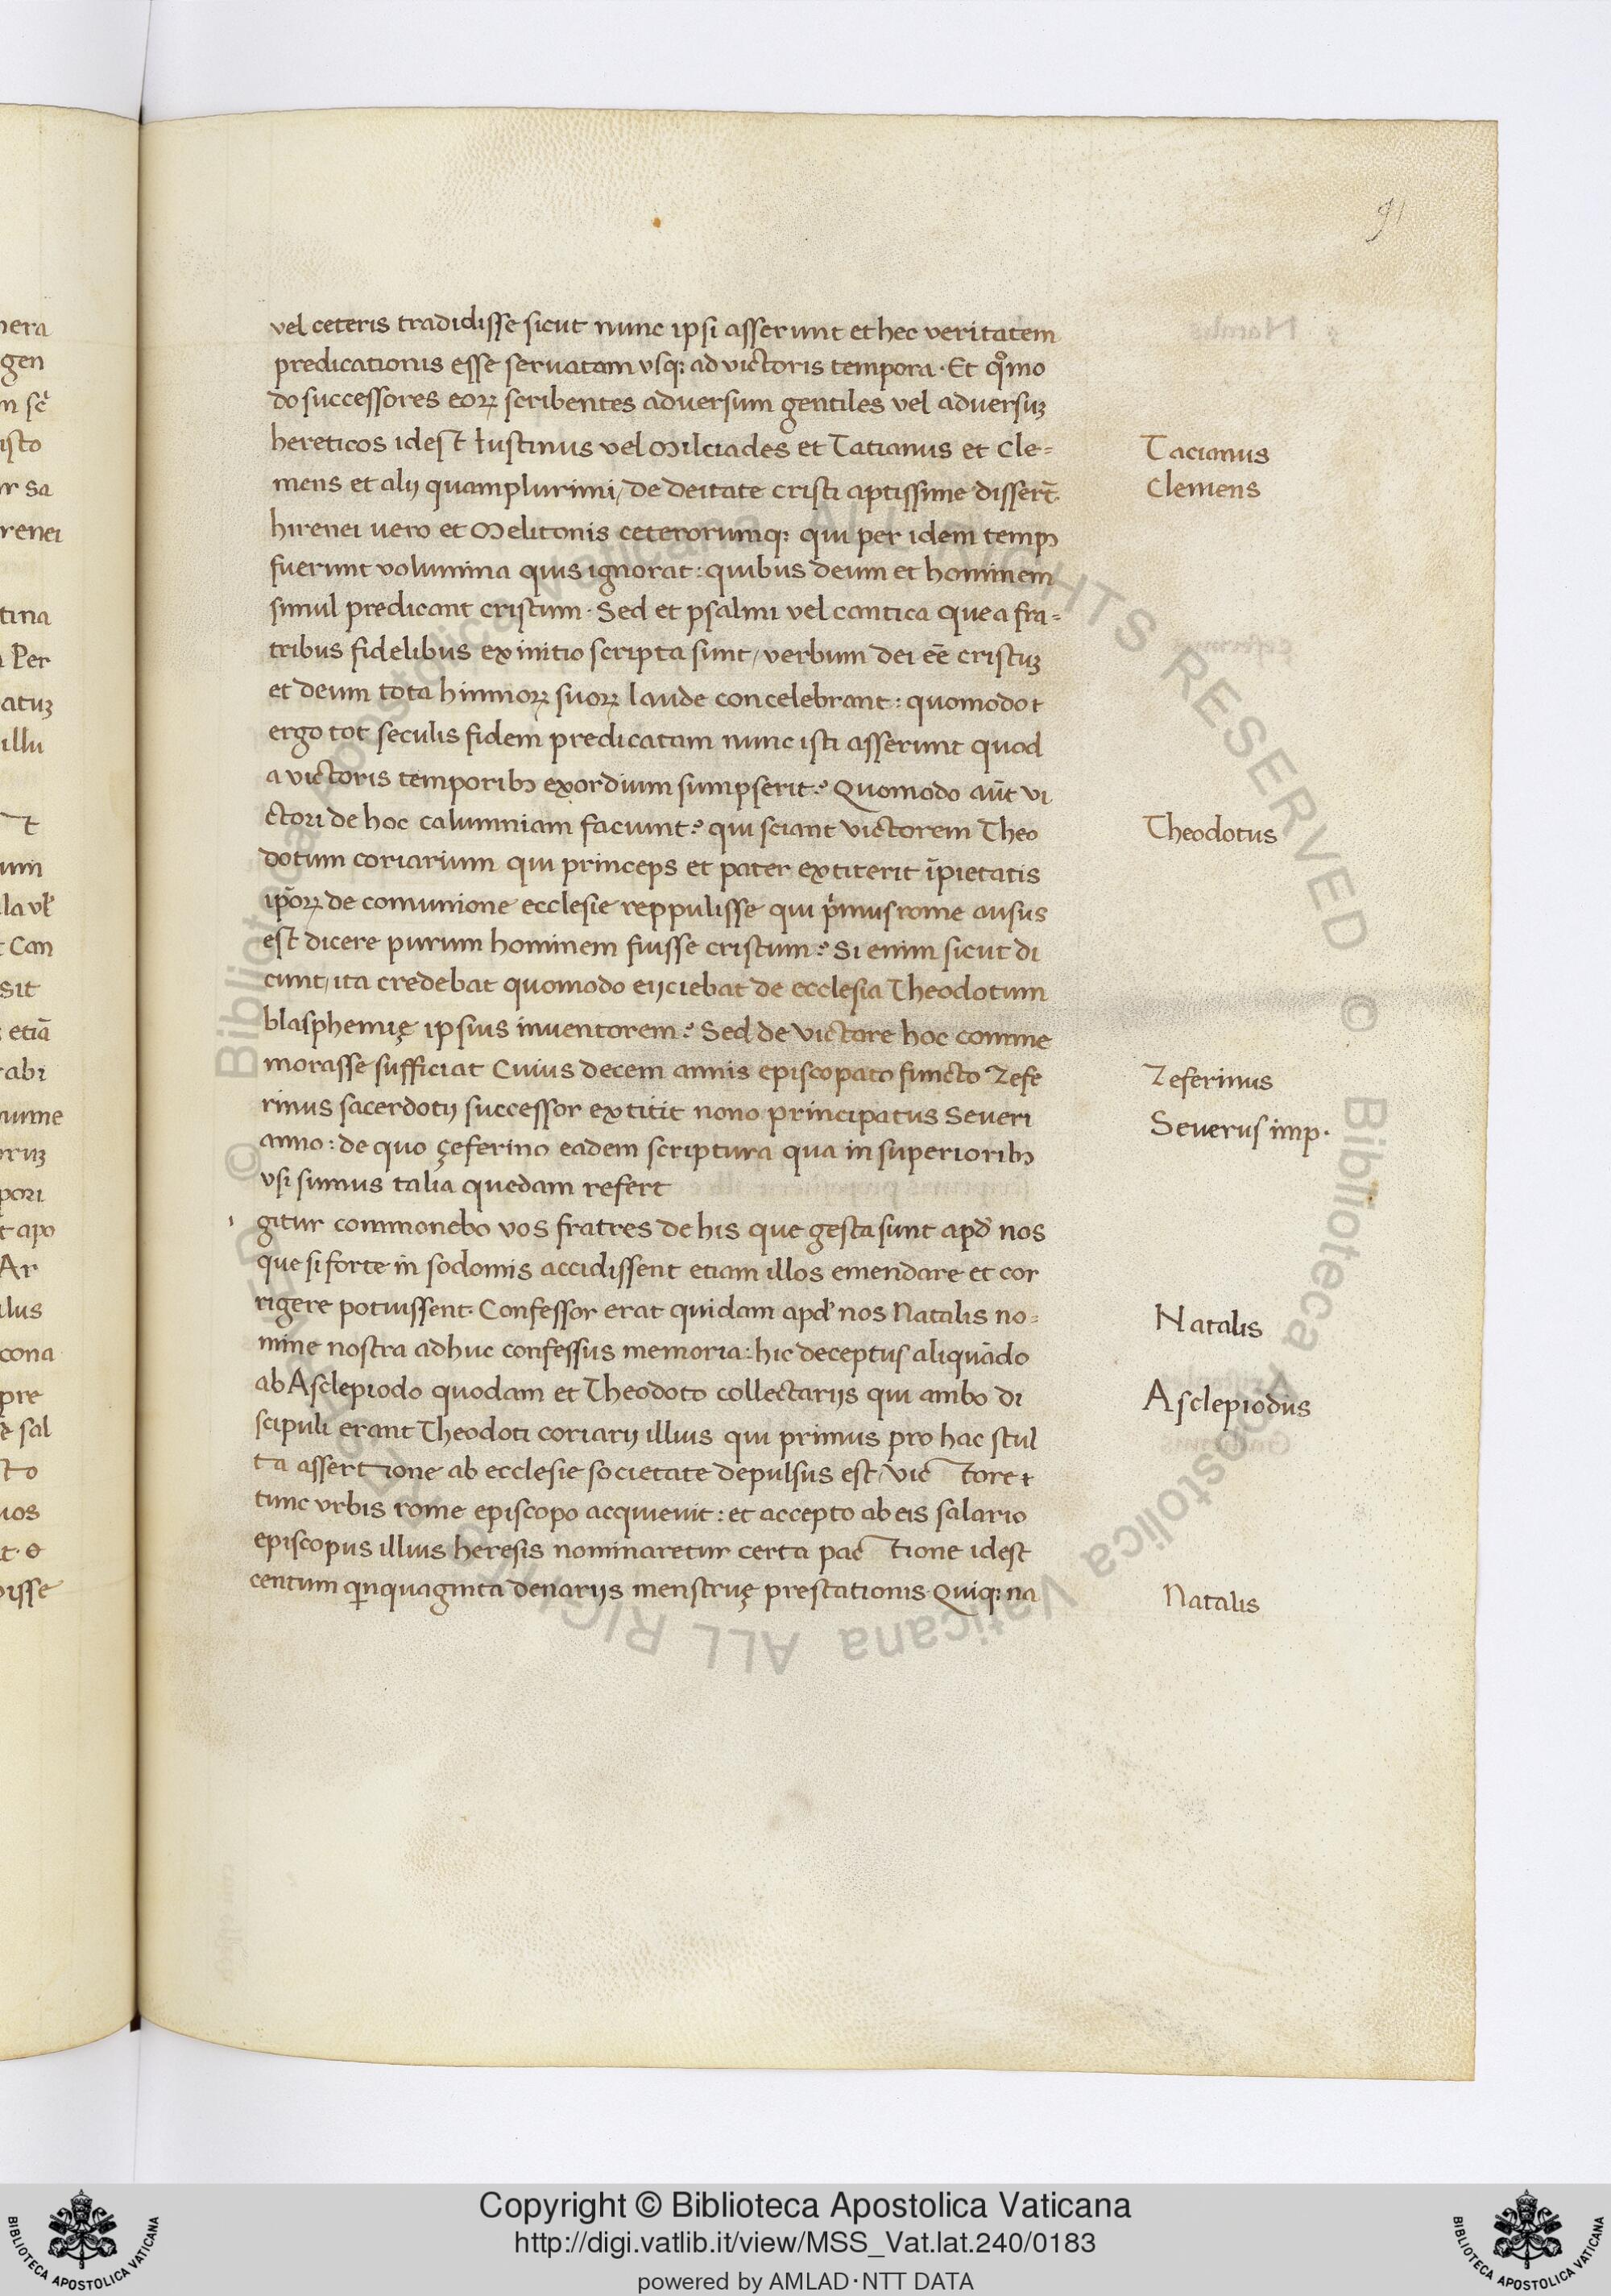 91
vel ceteris tradidisse sicut nunc ipsi asserunt et hec veritatem
predicationis esse servatam vsq; ad victoris tempora · Et qͦmo
do successores eoꝝ scribentes adversum gentiles vel adversuꝫ
hereticos idest Iustinus vel Milciades et Tatianus et Cle=
mens et alij quamplurimi, de deitate cristi aptissime disserūt.
hirenei uero et Melitonis ceterorumq; qui per idem tempꝰ
fuerunt volumina quis ignorat: quibus deum et hominem
simul predicant cristum · Sed et psalmi vel cantica que a fra=
tribus fidelibus ex initio scripta sunt, verbum dei eē cristuꝫ
et deum tota himnoꝝ suoꝝ laude concelebrant: quomodo t
ergo tot seculis fidem predicatam nunc isti asserunt quod
a victoris temporibꝰ exordium sumpserit? Quomodo aūt vi
ctori de hoc calumniam faciunt? qui sciant victorem Theo
dotum coriarium qui princeps et pater extiterit īpietatis
ip̄oꝝ de comunione ecclesie reppulisse qui pͥmus rome ausus
est dicere purum hominem fuisse cristum? Si enim sicut di
cunt, ita credebat quomodo eijciebat de ecclesia Theodotum
blasphemię ipsius inventorem? Sed de victore hoc comme
morasse sufficiat Cuius decem annis episcopato functo Zefe
rinus sacerdotij successor extitit nono principatus Seueri
anno: de quo çeferino eadem scriptura qua in superioribꝰ
vsi sumus talia quedam refert
i gitur commonebo vos fratres de his que gesta sunt apd̓ nos
que si forte in sodomis accidissent etiam illos emendare et cor
rigere potuissent. Confessor erat quidam apd̓ nos Natalis no=
mine nostra adhuc confessus memoria: hic deceptus aliquādo
ab Asclepiodo quodam et Theodoto collectarijs qui ambo di
scipuli erant Theodoti coriarij illius qui primus pro hac stul
ta assertione ab ecclesie societate depulsus est, vic tore t
tunc vrbis rome episcopo acquieuit: et accepto ab eis salario
episcopus illius heresis nominaretur certa pac tione idest
centum qͥnquaginta denarijs menstruę prestationis. Quiq; na
Tacianus
Clemens
Theodotus
Zeferinus
Seuerus imp.
Natalis
Asclepiodus
Natalis
nera
gen
isto
ur sa
renei
tina
Per
atuꝫ
illu
um
t Can
sit
etiā
abi
pori
t apo
Ar
ilus
cona
pre
ę sal
sto
uos
isse
© Biblioteca Apostolica Vaticana ALL RIGHTS RESERVED © Biblioteca Apostolica Vaticana ALL RIGHTS RESERVED
BIBLIOTECA APOSTOLICA VATICANA
Copyright © Biblioteca Apostolica Vaticana
http://digi.vatlib.it/view/MSS_Vat.lat.240/0183
powered by AMLAD·NTT DATA
BIBLIOTECA APOSTOLICA VATICANA